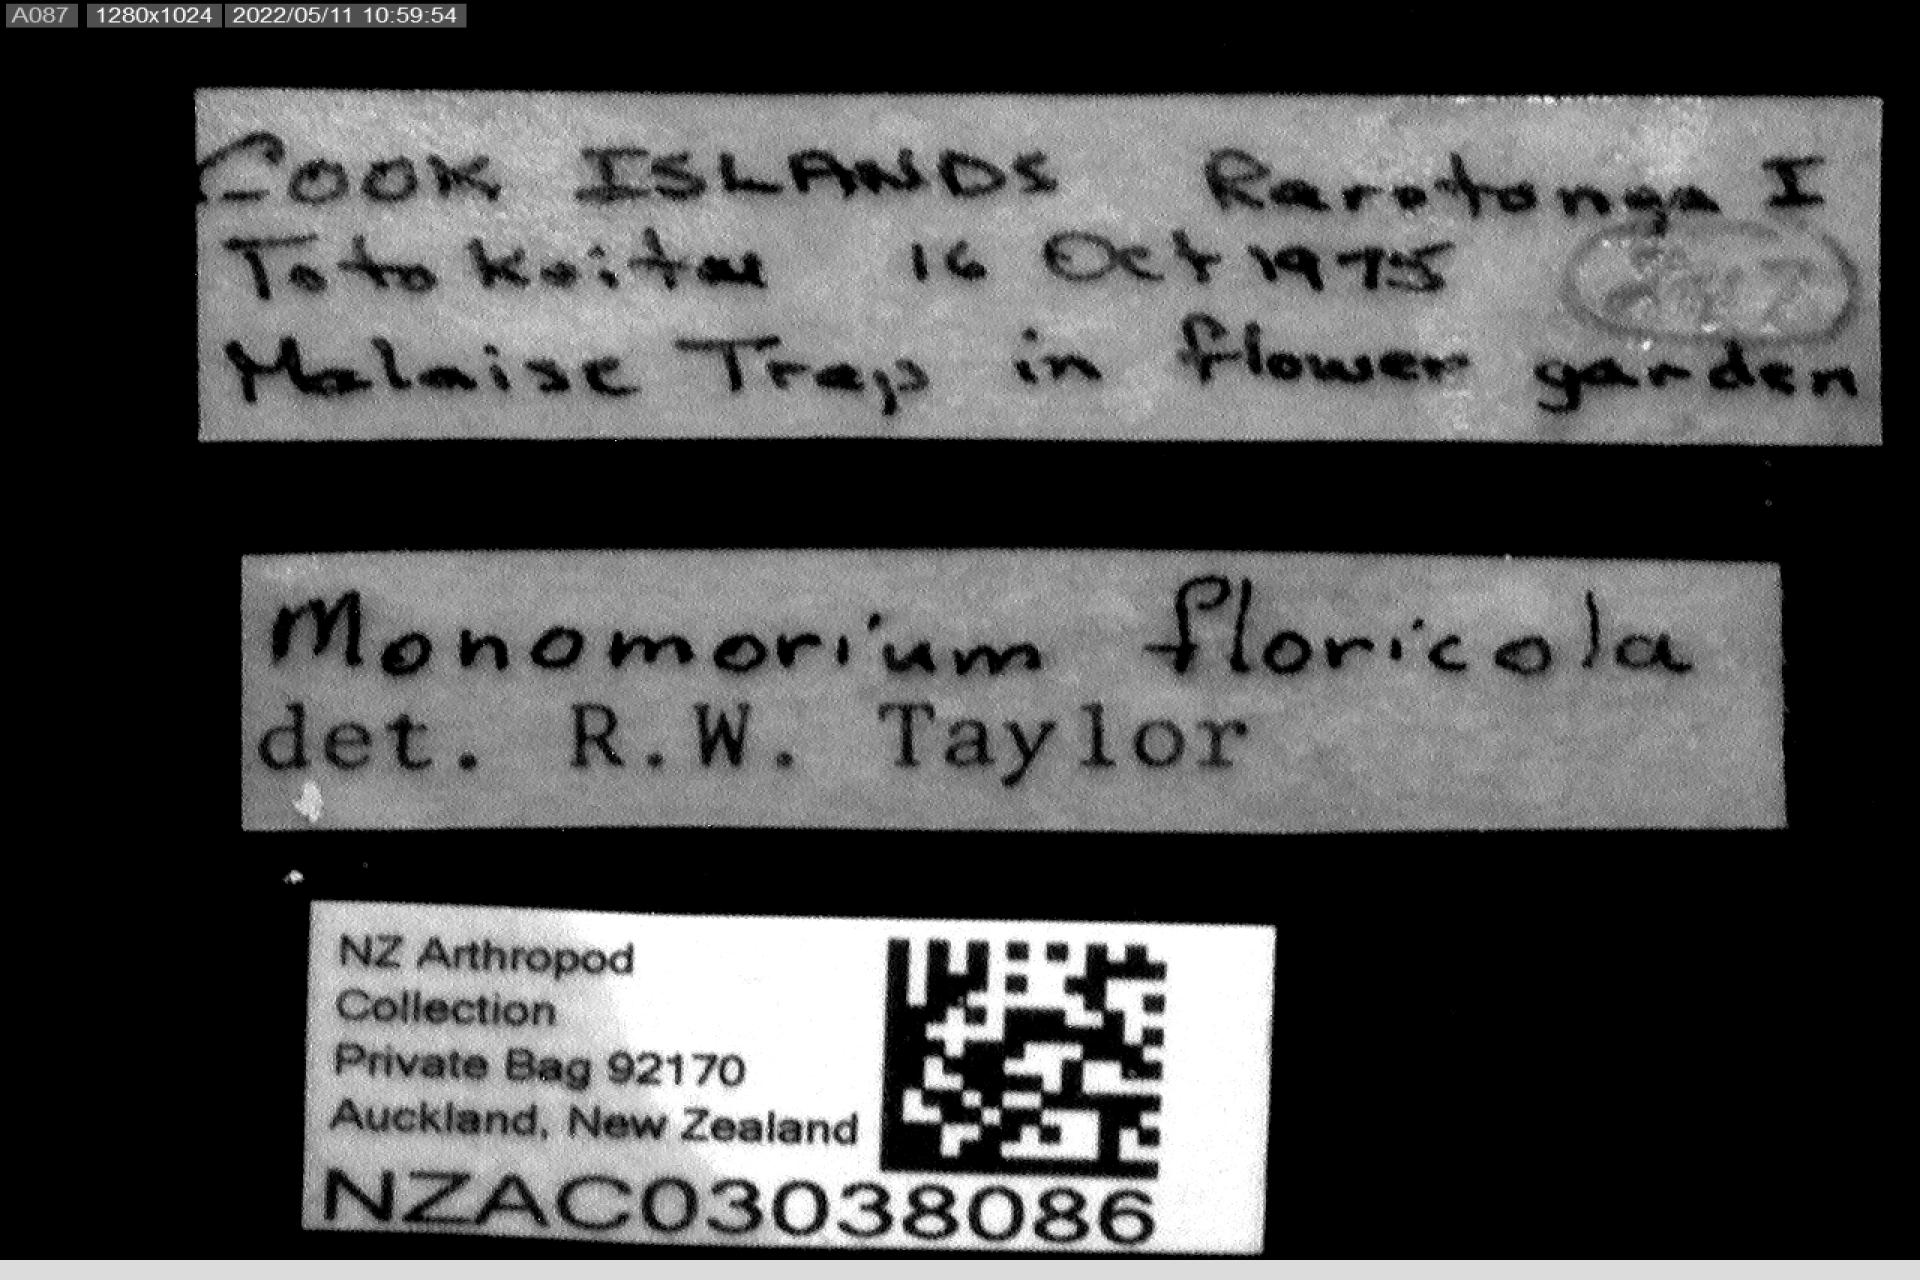 A087 1280x1024 2022/05/11 10:59:54
COOK ISLANDS Rarotonga I
Totokoitu 16 Oct 1975
Malaise Trap in flower garden
Monomorium floricola
det. R.W. Taylor
NZ Arthropod
Collection
Private Bag 92170
Auckland, New Zealand
NZAC03038086